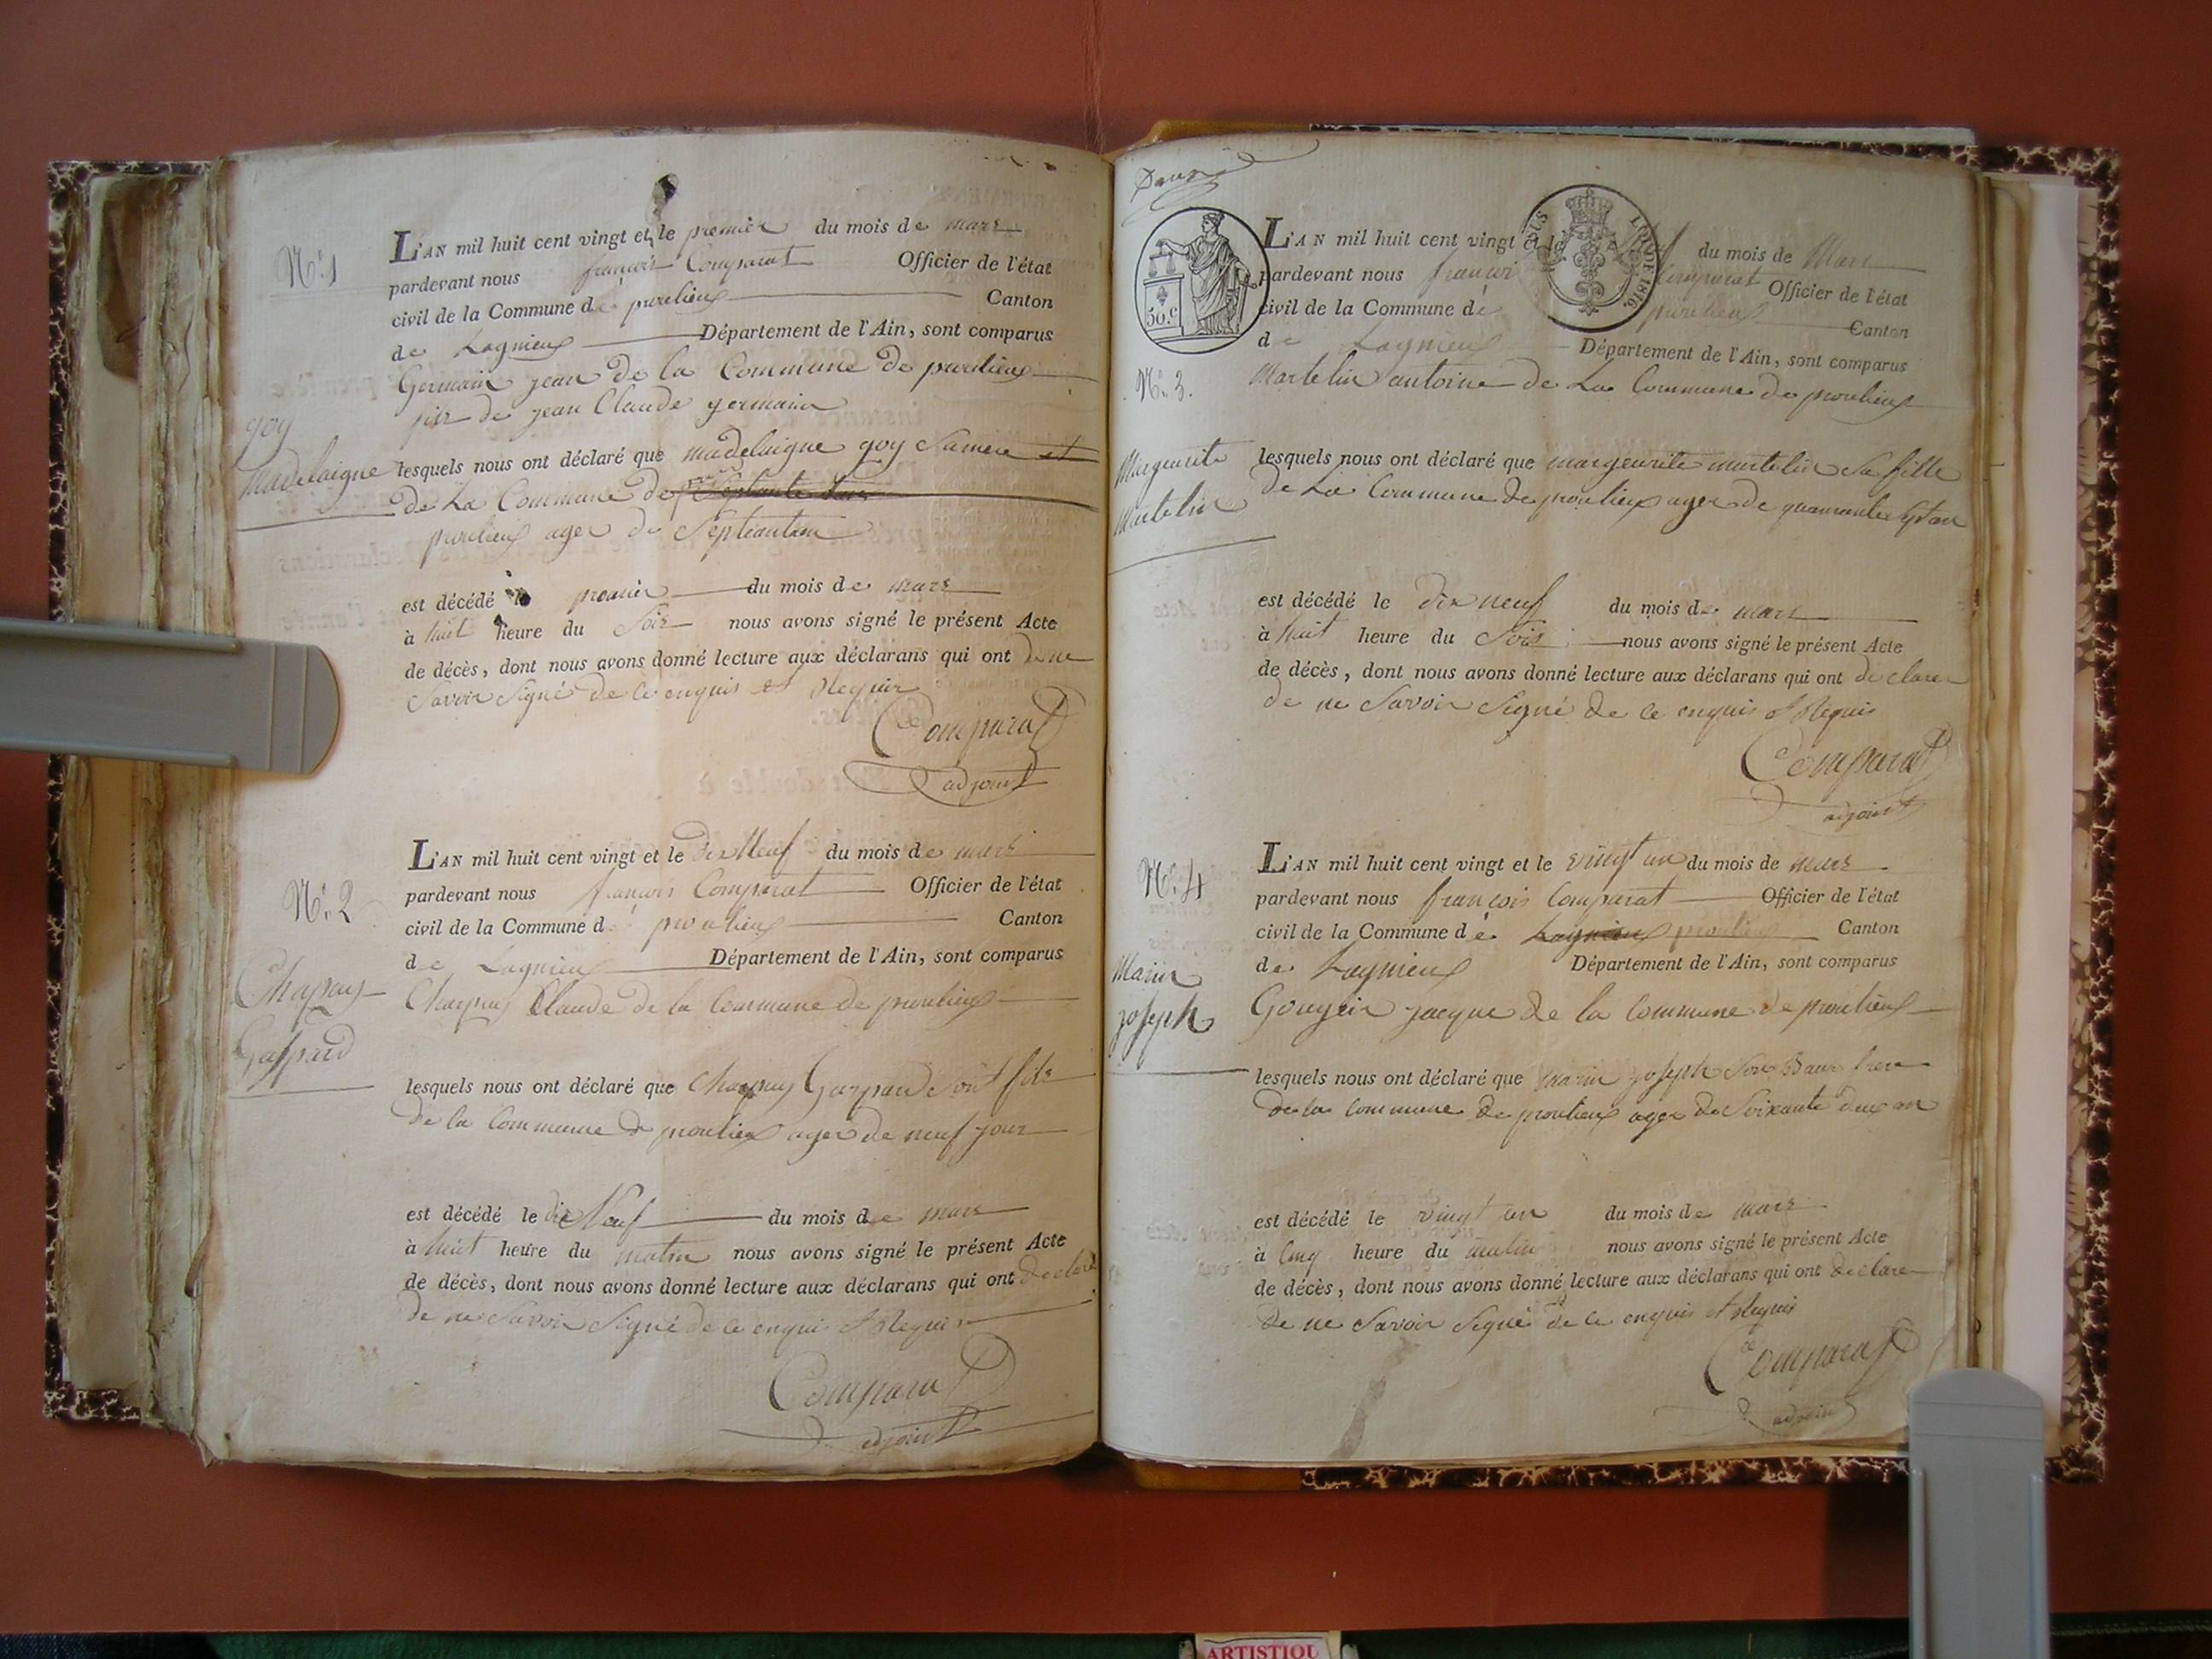 N.º 1
L'AN mil huit cent vingt et le premier du mois de mars
pardevant nous françois Comparat Officier de l'état
civil de la Commune de proulieux Canton
de Lagnieux Département de l'Ain, sont comparus
Germain jean de la Commune de proulieux
de jean Claude germain
goy
Madelaigne
lesquels nous ont déclaré que madelaigne goy Samere et
de La Commune de
proulieux ager de
est décédé le premier du mois de mars
à huit heure du Soir nous avons signé le présent Acte
de décès, dont nous avons donné lecture aux déclarans qui ont de ne
Savoir Signé de ce enquis et Requis
Comparat
adjoint
N.º 2
Chapuy
Gaspard
L'AN mil huit cent vingt et le dix Neuf du mois de mars
pardevant nous françois Comparat Officier de l'état
civil de la Commune de proulieux Canton
de Lagnieux Département de l'Ain, sont comparus
Chapuy Claude de la Commune de proulieux
lesquels nous ont déclaré que Chapuy Gaspard Sont fils
de la Commune de proulieux ager de neuf jour
est décédé le dix Neuf du mois de mars
à huit heure du matin nous avons signé le présent Acte
de décès, dont nous avons donné lecture aux déclarans qui ont declare
de ne Savoir Signé de ce enquis et Requis
Comparat
adjoint
50.c
1816.
N.º 3.
L'AN mil huit cent vingt et le du mois de Mars
pardevant nous françois Comparat Officier de l'état
civil de la Commune de proulieux Canton
de Lagnieux Département de l'Ain, sont comparus
Martelin antoine de La Commune de proulieux
Margeurite
Martelin
lesquels nous ont déclaré que margeurite martelin Sa fille
de La Commune de proulieux ager de
est décédé le dix neuf du mois de mars
à huit heure du Soir nous avons signé le présent Acte
de décès, dont nous avons donné lecture aux déclarans qui ont declarer
de ne Savoir Signé de ce enquis et Requis
Comparat
adjoint
N.º 4
Marin
joseph
L'AN mil huit cent vingt et le vingt un du mois de mars
pardevant nous françois Comparat Officier de l'état
civil de la Commune de Lagnieux proulieux Canton
de Lagnieux Département de l'Ain, sont comparus
jacque de la Commune de proulieux
lesquels nous ont déclaré que Marin joseph Son Baux frere
de la Commune de proulieux ager de Soixante deux an
est décédé le vingt un du mois de mars
à Cinq heure du matin nous avons signé le présent Acte
de décès, dont nous avons donné lecture aux déclarans qui ont declare
de ne Savoir Signé de ce enquis et Requis
Comparat
adjoint
ARTISTIQU